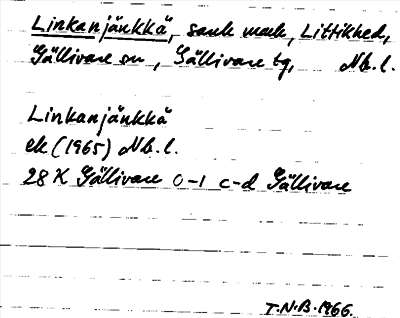 Linkanjänkkä, sank mark, Littikhed,
Gällivare sn, Gällivare tg, Nb. l.
Linkanjänkkä
ek (1965) Nb. l.
28 K Gällivare 0-1 c-d Gällivare
T.N.B. 1966.